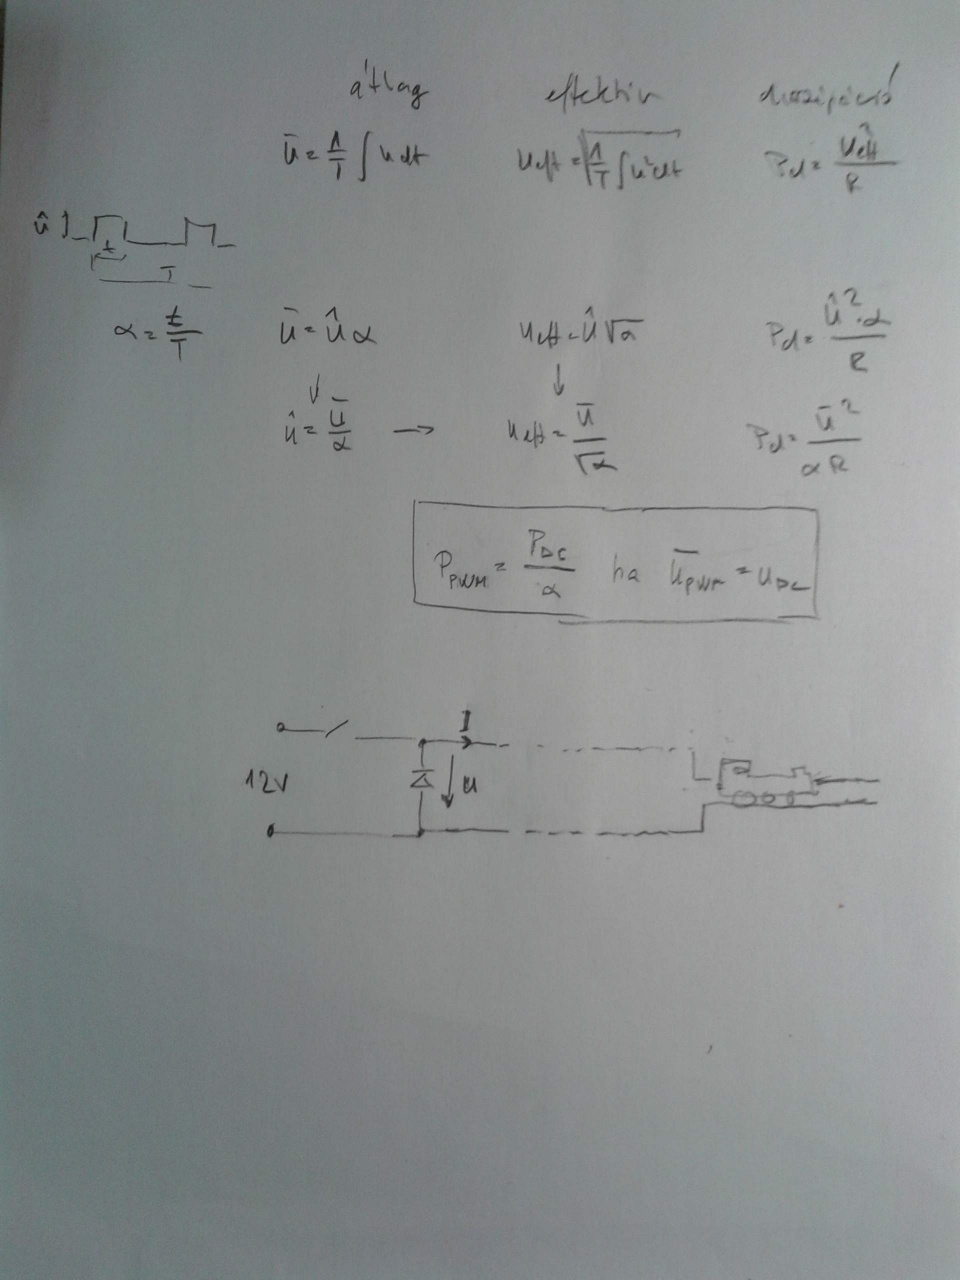 átlag effektív disszipáció
ū = 1/T ∫ u dt u_eff = √(1/T ∫ u² dt) P_d = u_eff²/R
û
t
T
α = t/T ū = û α u_eff = û √α P_d = û²·α/R
↓ ↓
û = ū/α → u_eff = ū/√α P_d = ū²/αR
P_PWM = P_DC/α ha ū_PWM = u_DC
I
12V u